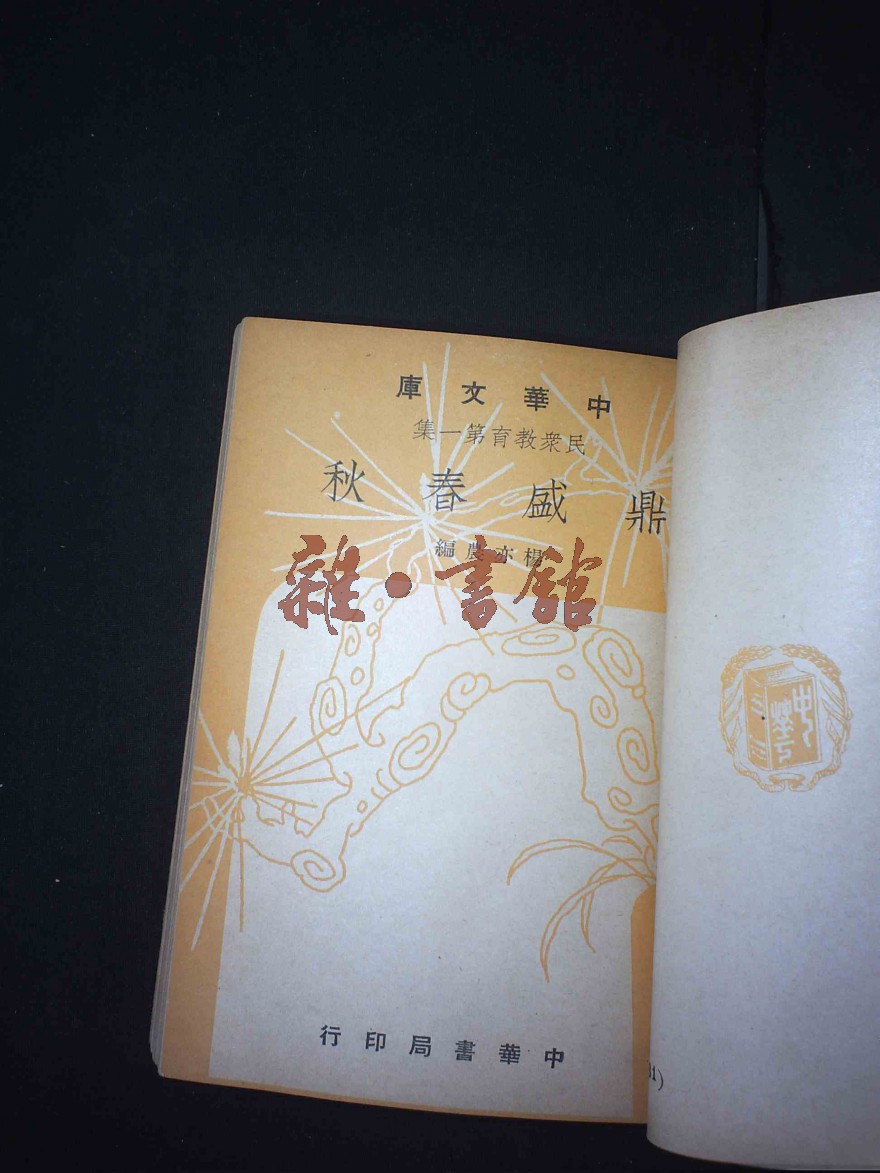 中華文庫
民衆教育第一集
鼎盛春秋
楊亦農編
雜·書館
中華書局印行
中華